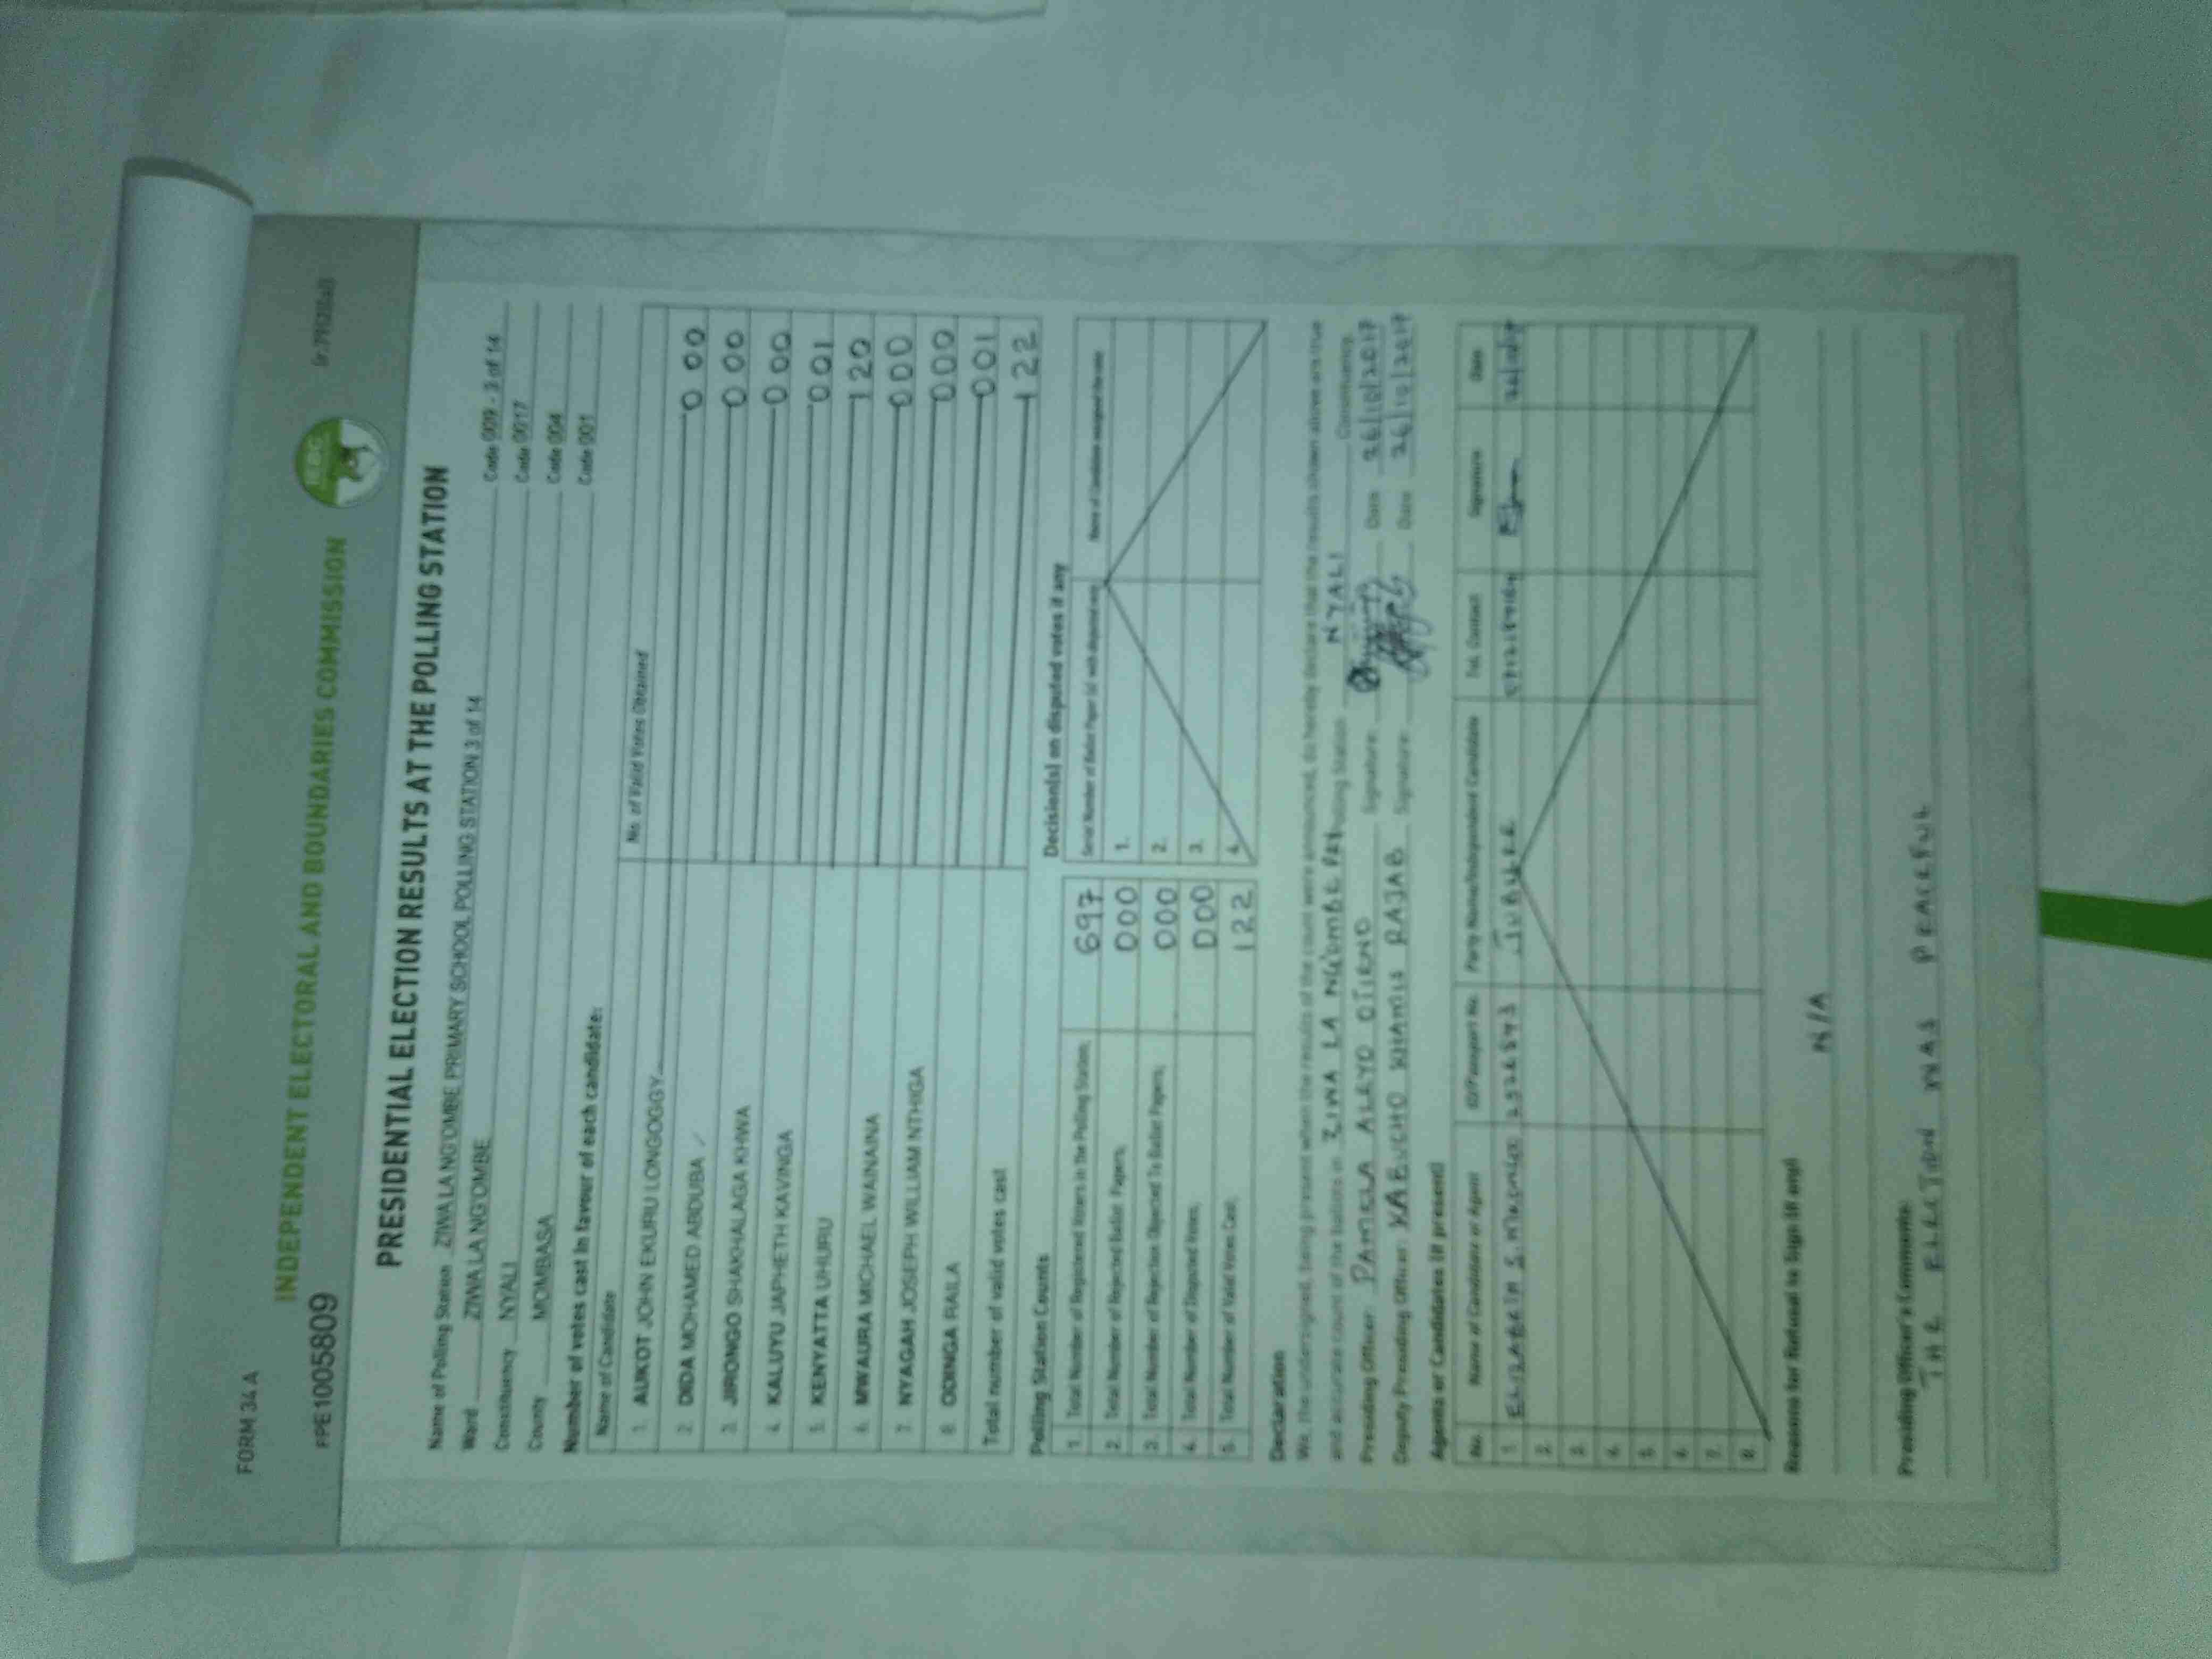 FORM 34A
INDEPENDENT ELECTORAL AND BOUNDARIES COMMISSION
IEBC
PPE1005809
PRESIDENTIAL ELECTION RESULTS AT THE POLLING STATION
Name of Polling Station ZIWA LA NG'OMBE PRIMARY SCHOOL POLLING STATION 3 of 14 Code 009 - 3 of 14
Ward ZIWA LA NG'OMBE Code 0017
Constituency NYALI Code 004
County MOMBASA Code 001
Number of votes cast in favour of each candidate:
Name of Candidate No. of Valid Votes Obtained
1. AUKOT JOHN EKURU LONGOGGY 000
2. DIDA MOHAMED ABDUBA 000
3. JIRONGO SHAKHALAGA KHWA 000
4. KALUYU JAPHETH KAVINGA 001
5. KENYATTA UHURU 120
6. MWAURA MICHAEL WAINAINA 000
7. NYAGAH JOSEPH WILLIAM NTHIGA 000
8. ODINGA RAILA 001
Total number of valid votes cast 122
Polling Station Counts
1. Total Number of Registered Voters in The Polling Station 697
2. Total Number of Rejected Ballot Papers 000
3. Total Number of Rejection Objected To Ballot Papers 000
4. Total Number of Disputed Votes 000
5. Total Number of Valid Votes Cast 122
Decision(s) on disputed votes if any
Serial Number of Ballot Paper (s) with disputed vote Name of Candidate assigned the vote
1.
2.
3.
4.
Declaration
We, the undersigned, being present when the results of the count were announced, do hereby declare that the results shown above are true
and accurate count of the ballots in ZIWA LA NG'OMBE PRY Polling Station NYALI Constituency.
Presiding Officer: PAMELA ALEYO OTIENO Signature: Date 26/10/2017
Deputy Presiding Officer: KABUCHO KHAMIS RAJAB Signature: Date 26/10/2017
Agents or Candidates (if present)
No. Name of Candidate or Agent ID/Passport No. Party Name/Independent Candidate Tel. Contact Signature Date
1. ELIZABETH JUBILEE
2.
3.
4.
5.
6.
7.
8.
Reasons for Refusal to Sign (if any)
N/A
Presiding Officer's Comments:
THE ELECTION WAS PEACEFUL